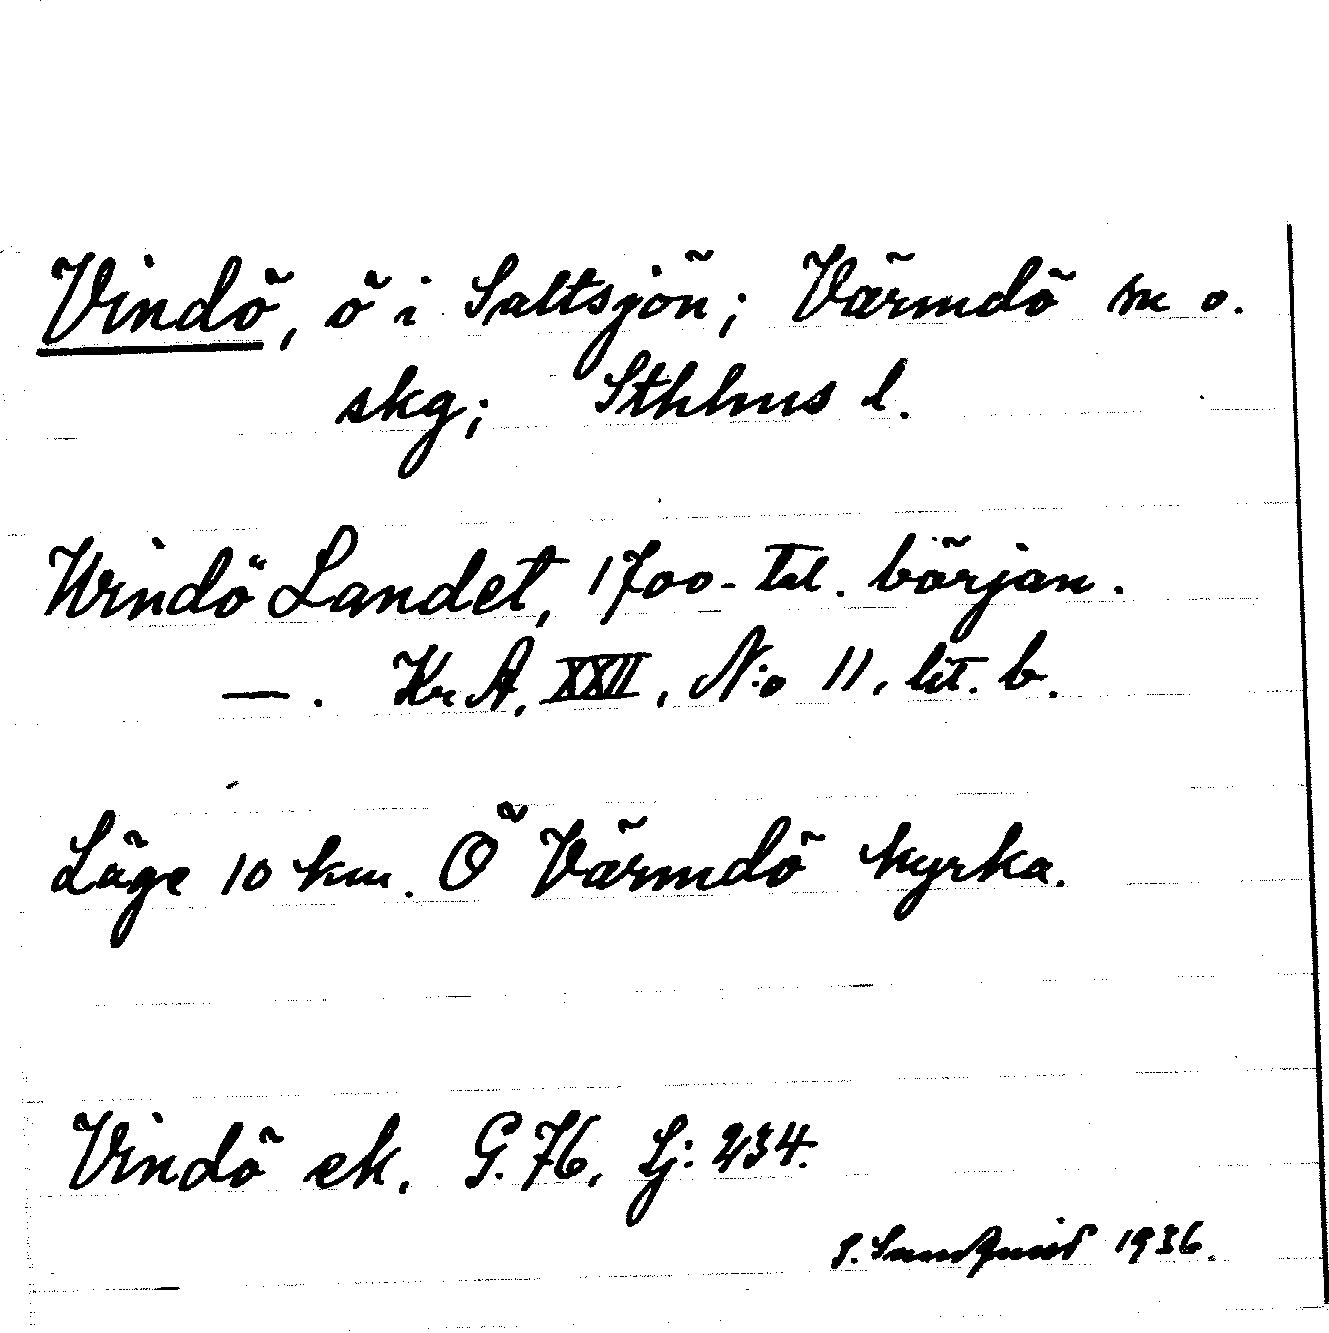 Vindö, ö i Saltsjön; Värmdö sn o.
skg; Sthlms l.
Windö Landet, 1700-tal. början.
—. Kr A, XXII, N:o 11, lit. b.
Läge 10 km. Ö Värmdö kyrka.
Vindö ek. G. 76. Lj: 234.
S. Sundquist 1936.